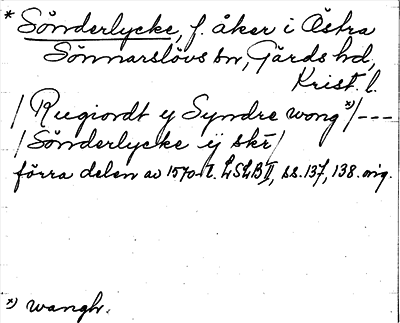 * Sönderlycke, f. åker i Östra
Sönnarslövs sn, Gärds hd,
Krist. l.
/ Rugiordt ý Syndre wong *)/---
/ Sönderlycke ýj skr/
förra delen av 1570-t. LSLB II, ss. 137, 138. orig.
*) wangh.